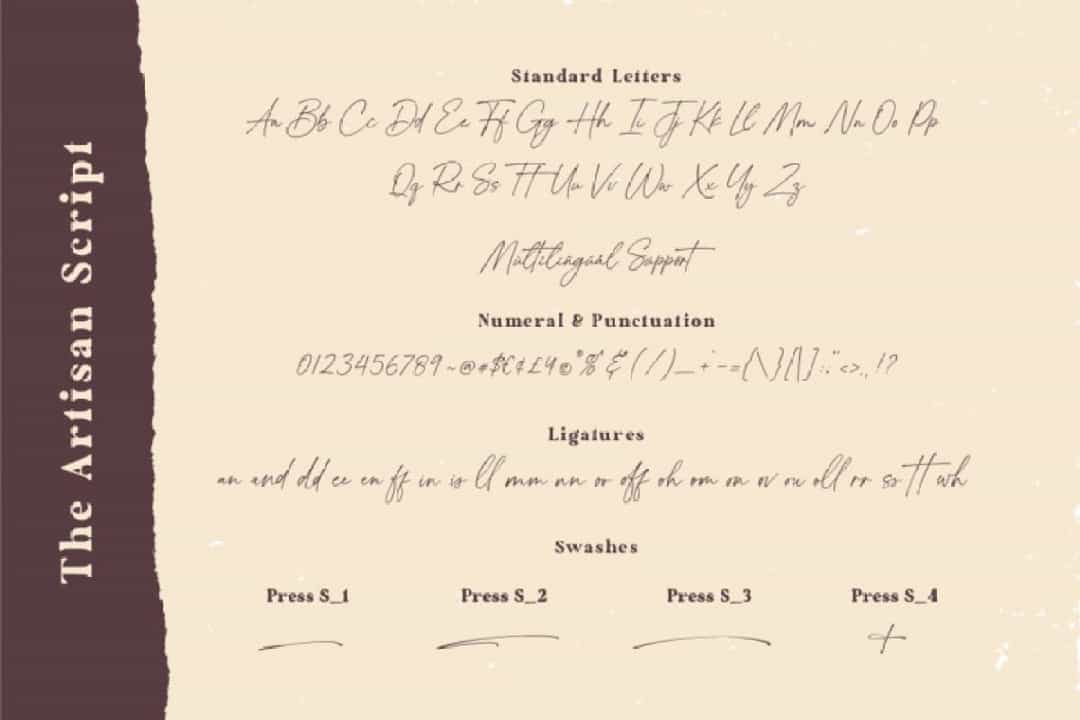 The Artisan Script
Standard Letters
Aa Bb Cc Dd Ee Ff Gg Hh Ii Jj Kk Ll Mm Nn Oo Pp
Qq Rr Ss Tt Uu Vv Ww Xx Yy Zz
Multilingual Support
Numeral & Punctuation
0123456789~@#$€¢£¥©°%&(/)_+-={\}[|]:;"<>.,!?
Ligatures
an and dd ee en ff in is ll mm nn or off oh om on ov ou oll rr ss tt wh
Swashes
Press S_1 Press S_2 Press S_3 Press S_4